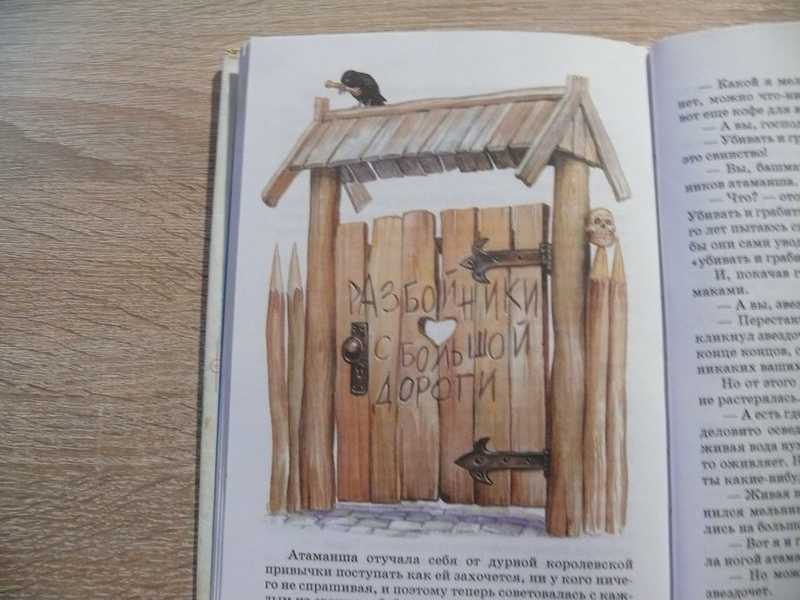 РАЗБОЙНИКИ
С БОЛЬШОЙ
ДОРОГИ
Атаманша отучала себя от дурной королевской
привычки поступать как ей захочется, ни у кого ниче-
го не спрашивая, и поэтому теперь советовалась с каж-
— Какой я мел
нет, можно что-ни
вот еще кофе для
— А вы, госпо
— Убивать и гра
это свинство!
— Вы, башма
ников атаманша.
— Что? — ото
Убивать и грабит
го лет пытаюсь с
бы они сами увод
«убивать и граби
И, покачав г
маками.
— А вы, звез
— Перестан
кликнул звездоч
конце концов, с
никаких ваших
Но от этого
не растерялась.
— А есть где
деловито освед
живая вода ну
то оживляет. П
ты какие-нибу
— Живая в
нился мельни
лись на больш
— Вот я и г
ла ногой атама
— Но мож
звездочет.